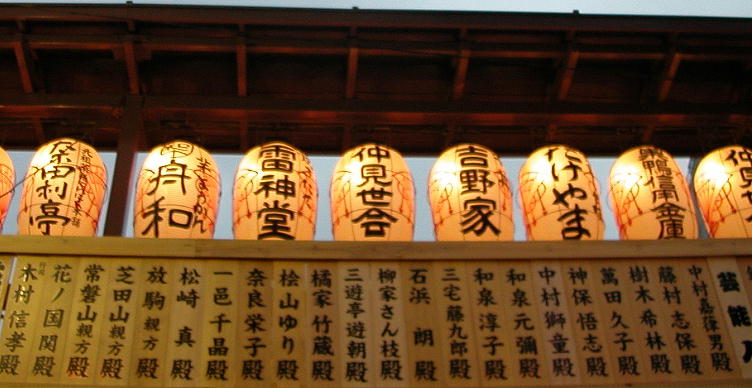 桒田利亭
舟和
雷神堂
仲見世会
吉野家
たけやま
巣鴨信用金庫
仲見
芸能人
中村嘉葎男殿
藤村志保殿
樹木希林殿
萬田久子殿
神保悟志殿
中村獅童殿
和泉元彌殿
和泉淳子殿
三宅藤九郎殿
石浜朗殿
柳家さん枝殿
三遊亭遊朝殿
橘家竹蔵殿
桧山ゆり殿
奈良栄子殿
一邑千晶殿
松崎真殿
放駒親方殿
芝田山親方殿
常磐山親方殿
花ノ国関殿
木村信孝殿